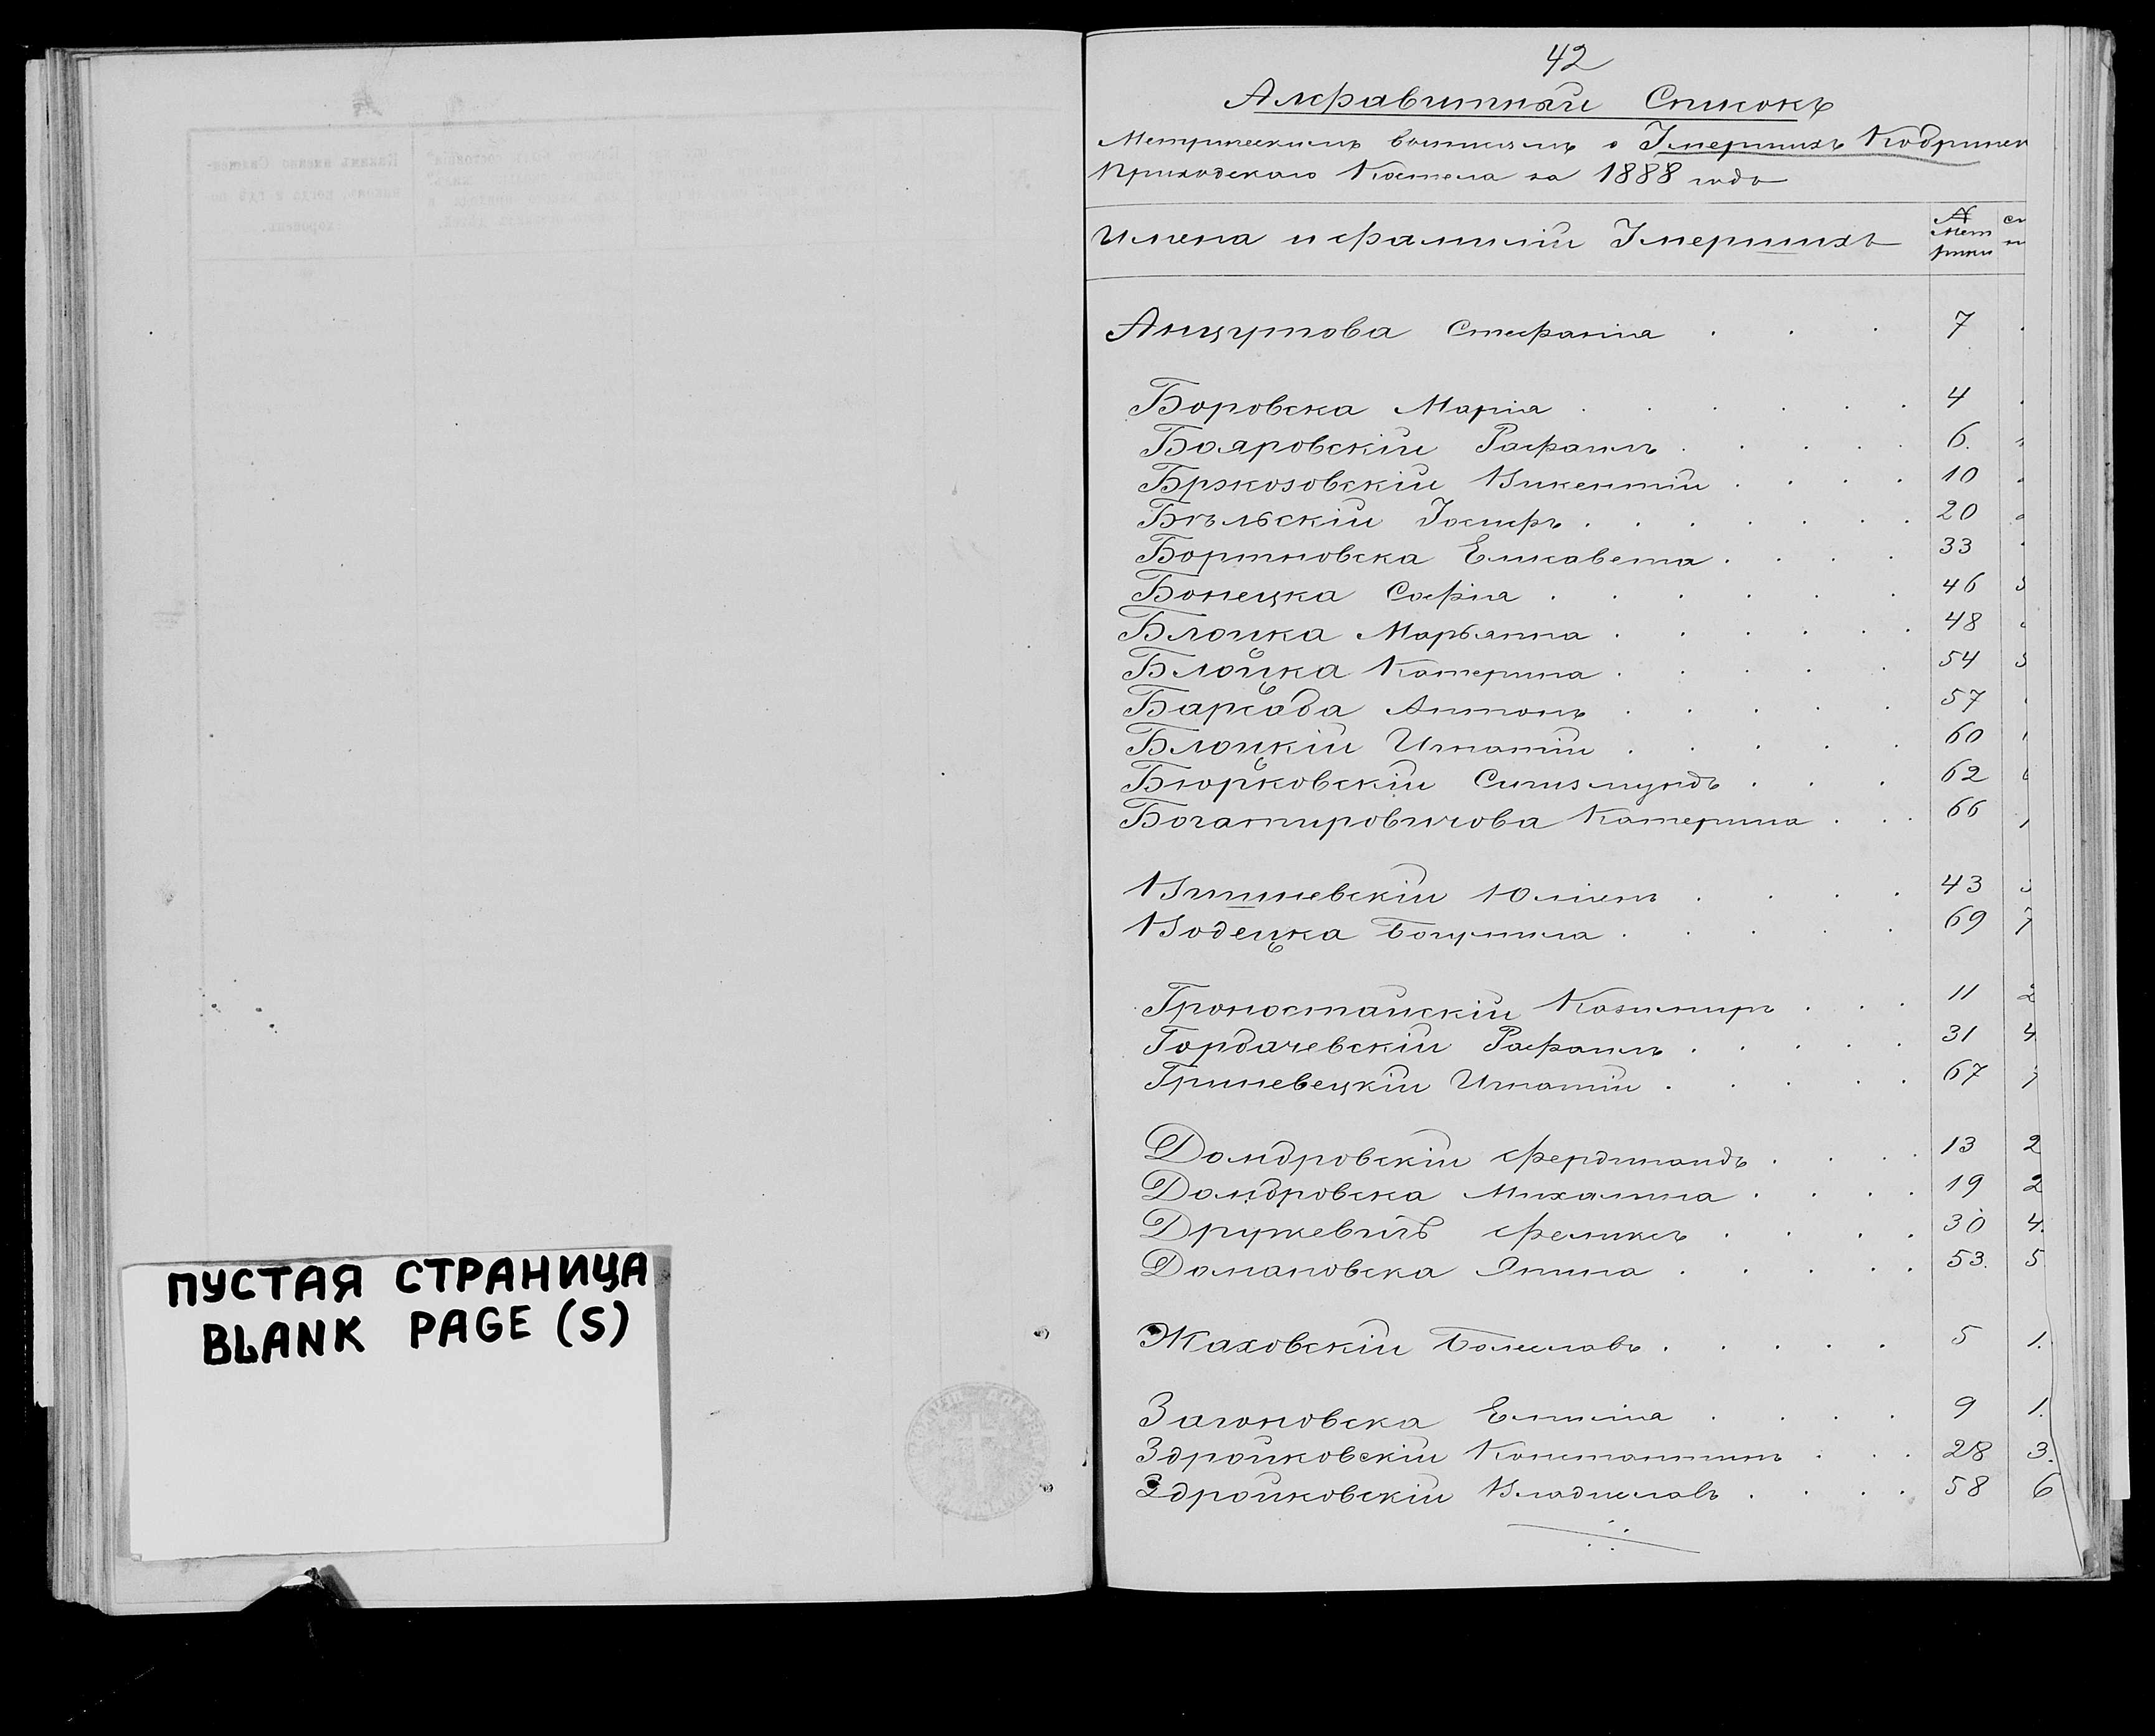 ПУСТАЯ СТРАНИЦА
BLANK PAGE (S)
42
Алфавитный Списокъ
Метрическимъ выписямъ о Умершихъ
Приходскаго Костела за 1888 годъ
Имена и фамиліи Умершихъ
№ мет рики
Анцутова Стефанія . . . 7
Боровска Марія . . . . . . 4
Бояровскій Рафаилъ . . . . . 6.
Бржозовскій Викентій . . . . 10
Бѣльскій Іосифъ . . . . . . . 20
Бортновска Елисавета . . . . 33
Бонецка Софія . . . . . . 46
Блоцка Марьянна . . . . . . 48
Блоцка Катерина . . . . . 54
Антонъ . . . . . 57
Блоцкій Игнатій . . . . . 60
Сигизмундъ . . . 62
Богатыровичова Катерина . . . 66
Вишневскій Юліанъ . . . . 43
Водецка Богумила . . . . . 69
Гроностайскій Казимиръ . . . 11 2
Горбачевскій Рафаилъ . . . . . 31 4
Гриневецкій Игнатій . . . . . 67
Домбровскій Фердинандъ . . . . 13 2
Домбровска Михалина . . . . 19 2
Феликсъ . . . . 30 4.
Домановска Янина . . . . . 53. 5
Жаховскій Болеславъ . . . . . 5 1.
Загоновска Емилія . . . . 9 1.
Здройковскій Константинъ . . . 28 3.
Здройковскій Владиславъ . . . . 58 6